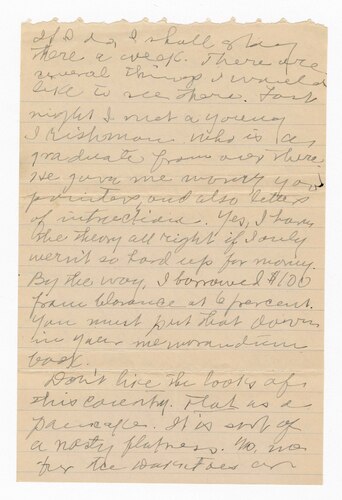 If I do, I shall stay
there a week. There are
several things I would
like to see there. Last
night I met a young
Irishman who is a
graduate from over there.
He gave me many good
pointers and also letters
of introduction. Yes, I have
the theory all right if I only
wern't so hard up for money.
By the way, I borrowed $100
from Clarence at 6 percent.
You must put that down
in your memorandum
book.
Don't like the looks of
this county. Flat as a
pancake. It is sort of
a nasty flatness. No, no
for the